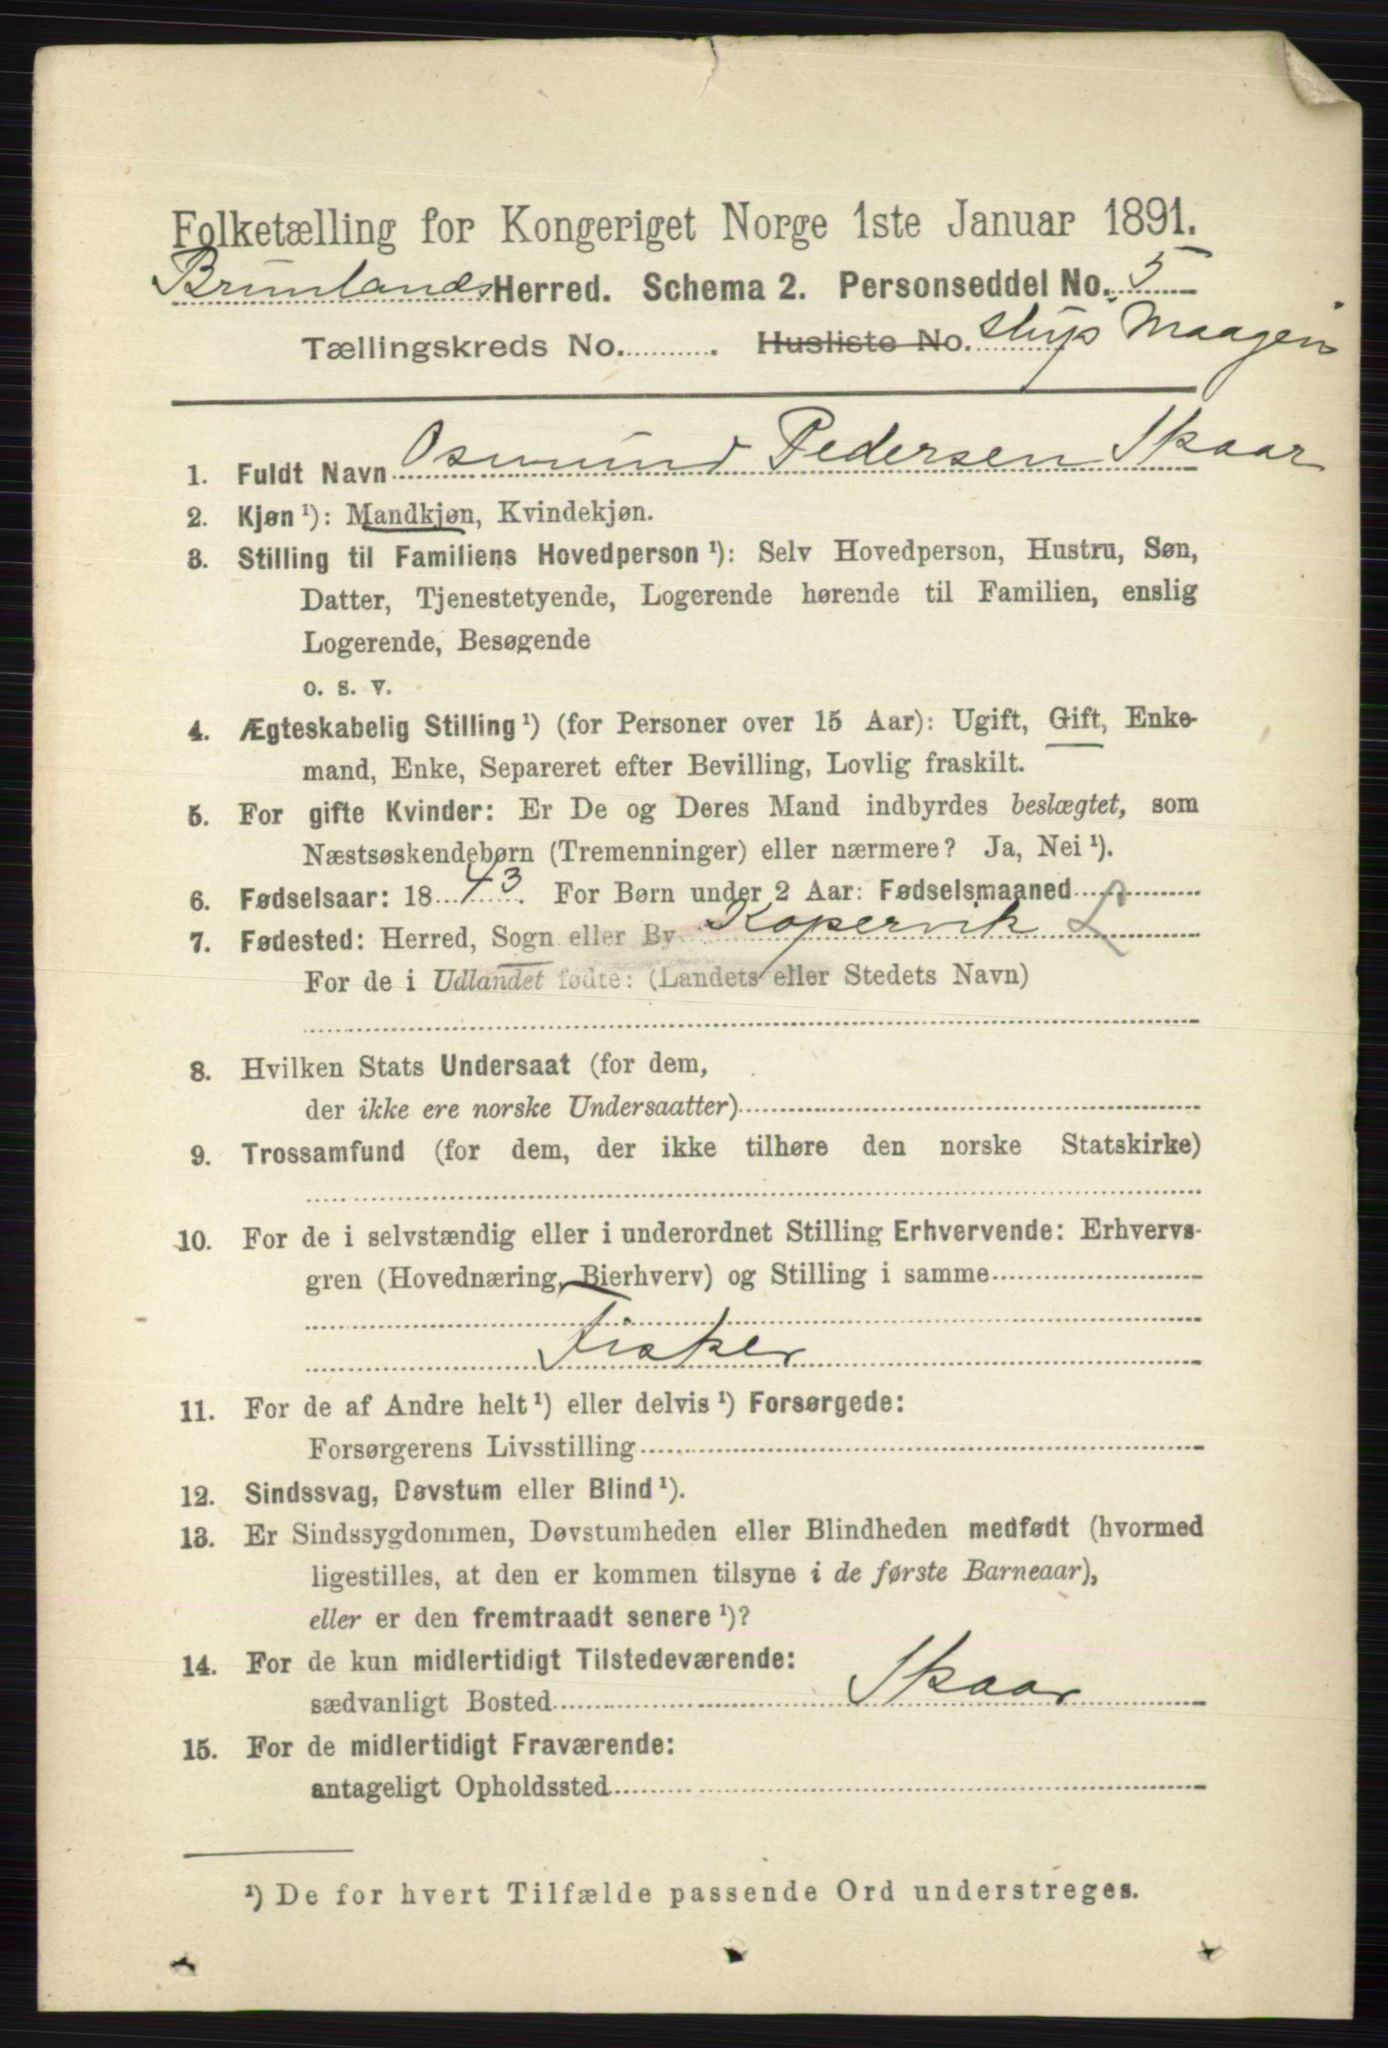 Folketælling for Kongeriget Norge 1ste Januar 1891.
Brunlands Herred. Schema 2. Personseddel No. 5
Tællingskreds No. ........... Husliste No. Skip Maagen
1. Fuldt Navn Osmund Pedersen Skaar
2. Kjøn ¹): Mandkjøn, Kvindekjøn.
3. Stilling til Familiens Hovedperson ¹): Selv Hovedperson, Hustru, Søn,
Datter, Tjenestetyende, Logerende hørende til Familien, enslig
Logerende, Besøgende
o. s. v.
4. Ægteskabelig Stilling ¹) (for Personer over 15 Aar): Ugift, Gift, Enke-
mand, Enke, Separeret efter Bevilling, Lovlig fraskilt.
5. For gifte Kvinder: Er De og Deres Mand indbyrdes beslægtet, som
Næstsøskendebørn (Tremenninger) eller nærmere? Ja, Nei ¹).
6. Fødselsaar: 18 43. For Børn under 2 Aar: Fødselsmaaned
7. Fødested: Herred, Sogn eller By Kopervik L
For de i Udlandet fødte: (Landets eller Stedets Navn)
8. Hvilken Stats Undersaat (for dem,
der ikke ere norske Undersaatter)
9. Trossamfund (for dem, der ikke tilhøre den norske Statskirke)
10. For de i selvstændig eller i underordnet Stilling Erhvervende: Erhvervs-
gren (Hovednæring, Bierhverv) og Stilling i samme
Fisker
11. For de af Andre helt ¹) eller delvis ¹) Forsørgede:
Forsørgerens Livsstilling
12. Sindssvag, Døvstum eller Blind ¹).
13. Er Sindssygdommen, Døvstumheden eller Blindheden medfødt (hvormed
ligestilles, at den er kommen tilsyne i de første Barneaar),
eller er den fremtraadt senere ¹)?
14. For de kun midlertidigt Tilstedeværende:
sædvanligt Bosted Skaar
15. For de midlertidigt Fraværende:
antageligt Opholdssted
¹) De for hvert Tilfælde passende Ord understreges.